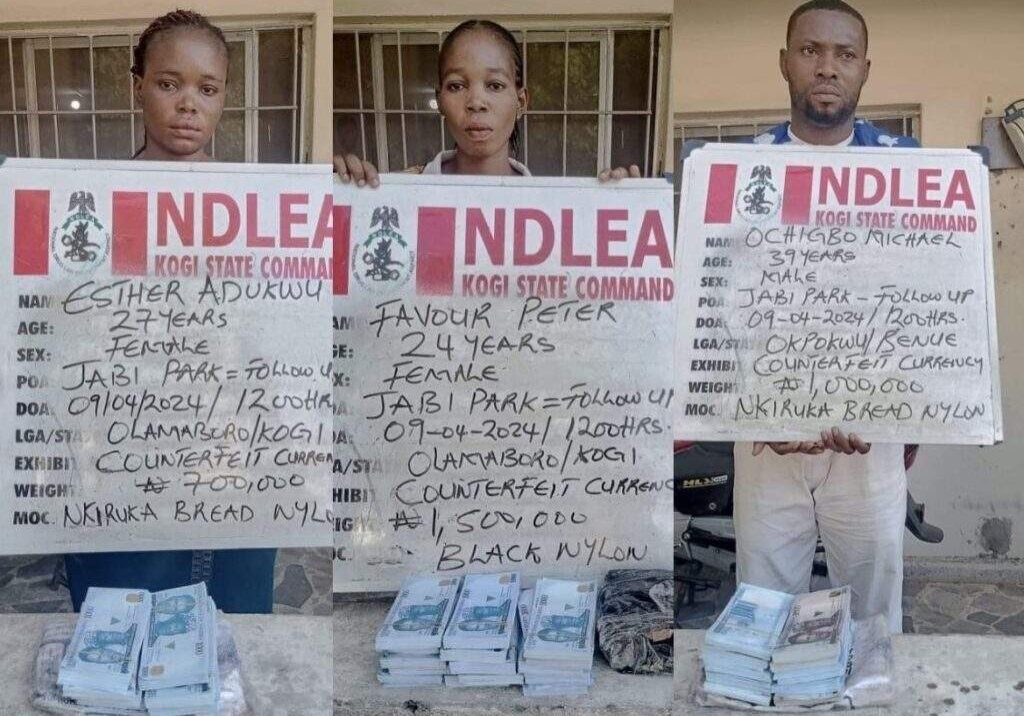 NDLEA
KOGI STATE COMMAN
NAM ESTHER ADUKWU
AGE: 27 YEARS
SEX: FEMALE
POA JABI PARK = FOLLOW UP
DOA: 09/04/2024/ 1200HRS
LGA/STA OLAMABORO/KOGI
EXHIBIT COUNTERFEIT CURREN
WEIGHT ₦ 700,000
MOC. NKIRUKA BREAD NYLO
NDLEA
KOGI STATE COMMAND
AM FAVOUR PETER
GE: 24 YEARS
X: FEMALE
JABI PARK = FOLLOW UP
A: 09-04-2024/ 1200HRS.
A/STA OLAMABORO/KOGI
HIBIT COUNTERFEIT CURRENC
IG ₦1,500,000
C. BLACK NYLON
NDLEA
KOGI STATE COMMAND
NAM OCHIGBO MICHAEL
AGE: 39 YEARS
SEX: MALE
POA JABI PARK - FOLLOW UP
DOA: 09-04-2024/1200HRS.
LGA/STA OKPOKWU/BENUE
EXHIBIT COUNTERFEIT CURRENCY
WEIGHT ₦1,000,000
MOC. NKIRUKA BREAD NYLON